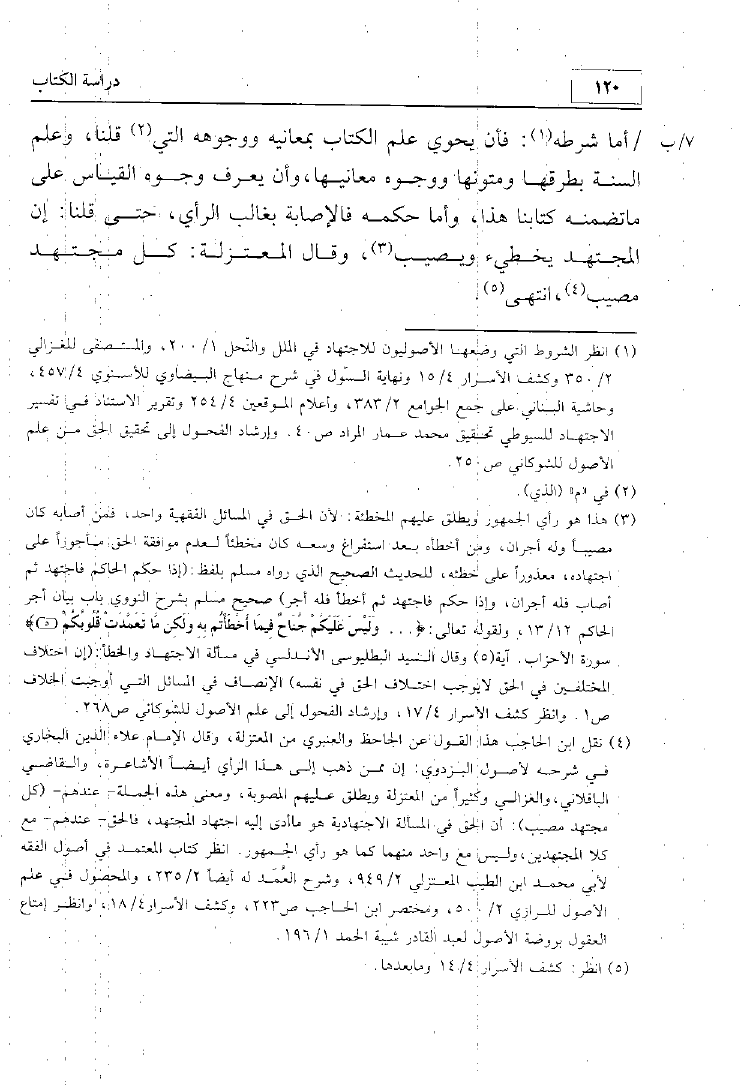 ١٢٠ دراسة الكتاب
٧/ب / أما شرطه(١): فأن يحوي علم الكتاب بمعانيه ووجوهه التي(٢) قلنا، وعلم
السنة بطرقها ومتونها ووجوه معانيها،وأن يعرف وجوه القياس على
ماتضمنه كتابنا هذا، وأما حكمه فالإصابة بغالب الرأي، حتى قلنا: إن
المجتهد يخطيء ويصيب(٣)، وقال المعتزلة: كل مجتهد
مصيب(٤)،انتهى(٥).
(١) انظر الشروط التي وضعها الأصوليون للاجتهاد في الملل والنحل ٢٠٠/١، والمستصفى للغزالي
٣٥٠/٢ وكشف الأسرار ١٥/٤ ونهاية السّول في شرح منهاج البيضاوي للأسنوي ٤٥٧/٤،
وحاشية البناني على جمع الجوامع ٣٨٣/٢، وأعلام الموقعين ٢٥٤/٤ وتقرير الاستناد في تفسير
الاجتهاد للسيوطي تحقيق محمد عمار المراد ص٤٠. وإرشاد الفحول إلى تحقيق الحق من علم
الأصول للشوكاني ص٢٥٠.
(٢) في «م» (الذي).
(٣) هذا هو رأي الجمهور ويطلق عليهم المخطئة: لأن الحق في المسائل الفقهية واحد، فمن أصابه كان
مصيباً وله أجران، ومن أخطأه بعد استفراغ وسعه كان مخطئاً لعدم موافقة الحق مأجوراً على
اجتهاده، معذوراً على خطئه، للحديث الصحيح الذي رواه مسلم بلفظ:(إذا حكم الحاكم فاجتهد ثم
أصاب فله أجران، وإذا حكم فاجتهد ثم أخطأ فله أجر) صحيح مسلم بشرح النووي باب بيان أجر
الحاكم ١٣/١٢، ولقوله تعالى:﴿ ... وَلَيْسَ عَلَيْكُمْ جُنَاحٌ فِيمَا أَخْطَأْتُم بِهِ وَلَكِن مَّا تَعَمَّدَتْ قُلُوبُكُمْ (٥)﴾
سورة الأحزاب. آية(٥) وقال السّيد البطليوسى الأندلسي في مسألة الاجتهاد والخطأ:(إن اختلاف
المختلفين في الحق لايوجب اختلاف الحق في نفسه) الإنصاف في المسائل التي أوجبت الخلاف
ص١. وانظر كشف الأسرار ١٧/٤، وإرشاد الفحول إلى علم الأصول للشوكاني ص٢٦٨.
(٤) نقل ابن الحاجب هذا القول عن الجاحظ والعنبري من المعتزلة، وقال الإمام علاء الدين البخاري
في شرحه لأصول البزدوي: إن ممن ذهب إلى هذا الرأي أيضاً الأشاعرة، والقاضي
الباقلاني،والغزالي وكثيراً من المعتزلة ويطلق عليهم المصوبة، ومعنى هذه الجملة- عندهم- (كل
مجتهد مصيب): أن الحق في المسألة الاجتهادية هو ماأدى إليه اجتهاد المجتهد، فالحق- عندهم- مع
كلا المجتهدين،وليس مع واحد منهما كما هو رأي الجمهور. انظر كتاب المعتمد في أصول الفقه
لأبي محمد ابن الطيب المعتزلي ٩٤٩/٢، وشرح العُمَد له أيضاً ٢٣٥/٢، والمحصول في علم
الأصول للرازي ٥٠٠/٢، ومختصر ابن الحاجب ص٢٢٣، وكشف الأسرار١٨/٤، وانظر إمتاع
العقول بروضة الأصول لعبد القادر شيبة الحمد ١٩٦/١.
(٥) انظر: كشف الأسرار ١٤/٤ ومابعدها.